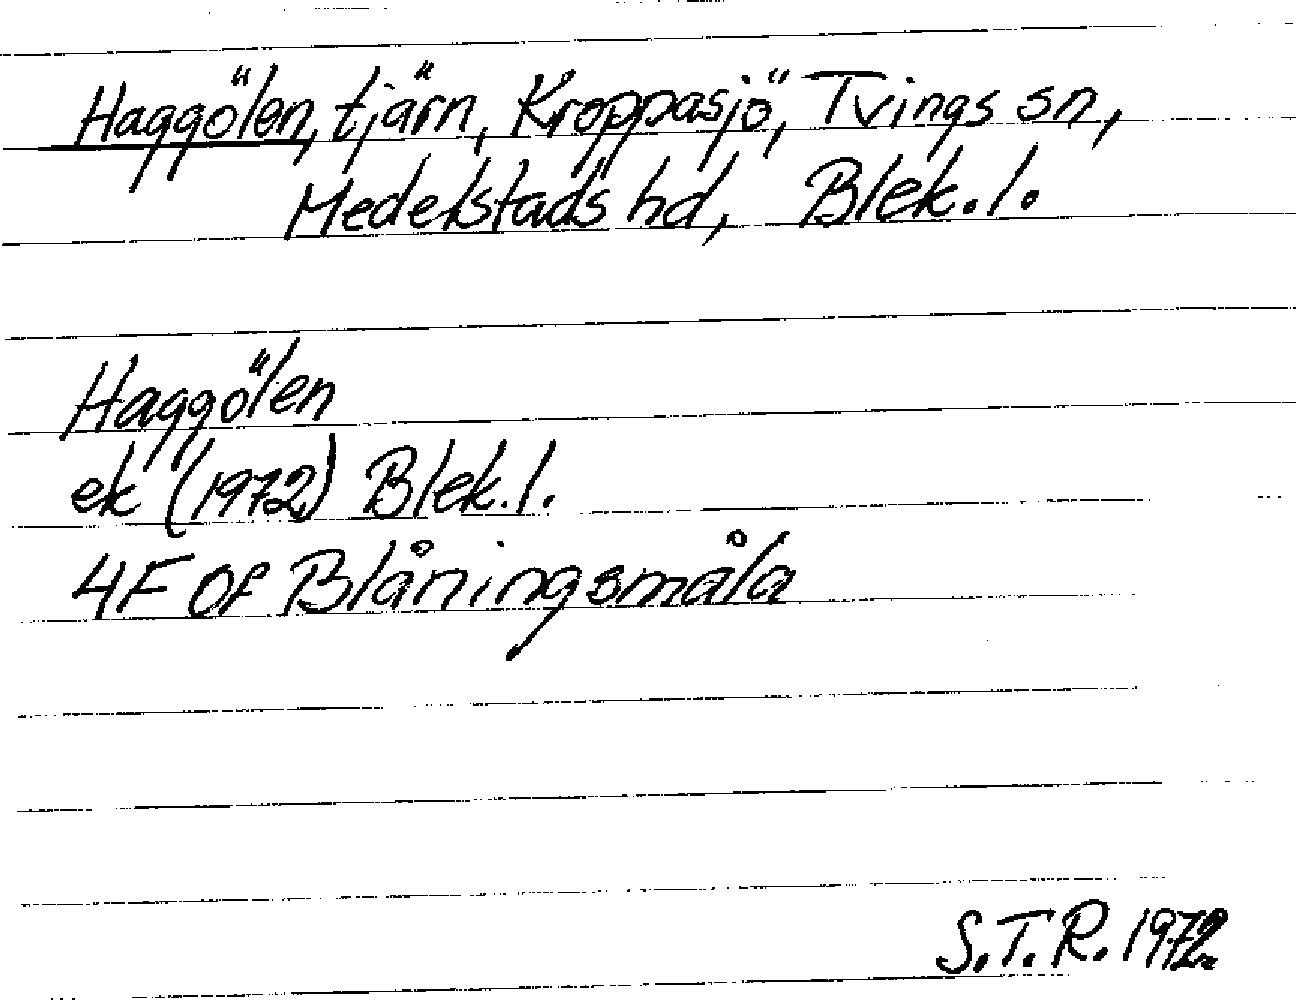 Haggölen, tjärn, Kroppasjö, Tvings sn,
Medelstads hd, Blek. l.
Haggölen
ek (1972) Blek. l.
4F 0f Blåningsmåla
S.T.R. 1972